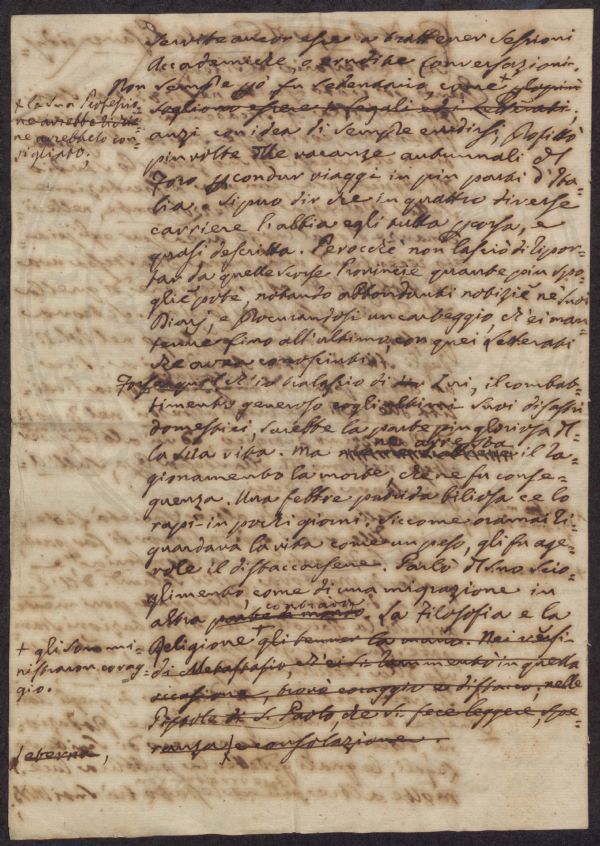 Servite ancor esse a trattener sessioni
Accademiche, o erudite conversazioni.
Non sempre però fu sedentario, come + glapini
sogliono essere i legali ed i letterati,
+ la sua Professio-
ne avrebbe
ne avrebbelo con-
sigliato;
anzi con idea di sempre erudirsi, profittò
più volte delle vacanze autunnali del
Foro per condur viaggi in più parti d'Ita-
lia. Si può dir che in quattro diverse
carriere l'abbia egli tutta scorsa, e
quasi descritta. Perocchè non lasciò di ripor-
tar da quelle scorse Provincie quante più spo-
glie potè, notando abbondanti notizie ne' suoi
Diarj, e procurandosi un carteggio, ch'ei man-
tenne fino all'ultimo, con quei Letterati
che avea conosciuti.
Forse quel ch'io tralascio di Lui, il combat-
timento generoso cogli ultimi suoi disastri
domestici, sarebbe la parte più gloriosa del-
la sua vita. Ma
ne arresta
il ra-
gionamento la morte, che ne fu conse-
guenza. Una febbre putrida biliosa ce lo
rapì in pochi giorni. Siccome oramai ri-
guardava la vita come un peso, gli fu age-
vole il distaccarsene. Parlò del suo scio-
glimento come di una migrazione in
contrada
altra parte di mondo. La Filosofia e la
Religione gli tenner la mano. Nei versi
+ gli sommi-
nistraron corag-
gio.
di Metastasio, ch'ei si rammentò in quella
occasione, trovò coraggio e distacco, nelle
Epistole di S. Paolo, che si fece leggere, spe-
ranza e consolazione.
eterna,